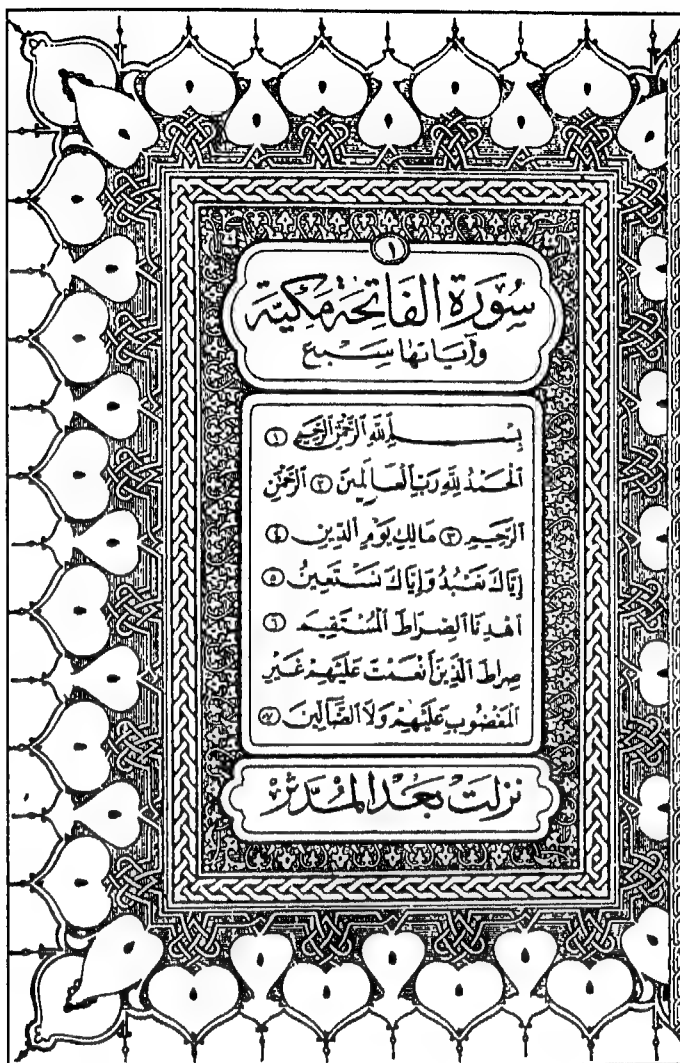 ١
سُورَةُ الفَاتِحَةِ مَكِّيَّة
وآيَاتهَا سَبْع
بِسْمِ ٱللَّهِ ٱلرَّحْمَٰنِ ٱلرَّحِيمِ ١
ٱلْحَمْدُ لِلَّهِ رَبِّ ٱلْعَالَمِينَ ٢ ٱلرَّحْمَٰنِ
ٱلرَّحِيمِ ٣ مَالِكِ يَوْمِ ٱلدِّينِ ٤
إِيَّاكَ نَعْبُدُ وَإِيَّاكَ نَسْتَعِينُ ٥
ٱهْدِنَا ٱلصِّرَاطَ ٱلْمُسْتَقِيمَ ٦
صِرَاطَ ٱلَّذِينَ أَنْعَمْتَ عَلَيْهِمْ غَيْرِ
ٱلْمَغْضُوبِ عَلَيْهِمْ وَلَا ٱلضَّآلِّينَ ٧
نَزلَتْ بَعْدَ المُدَّثِّر